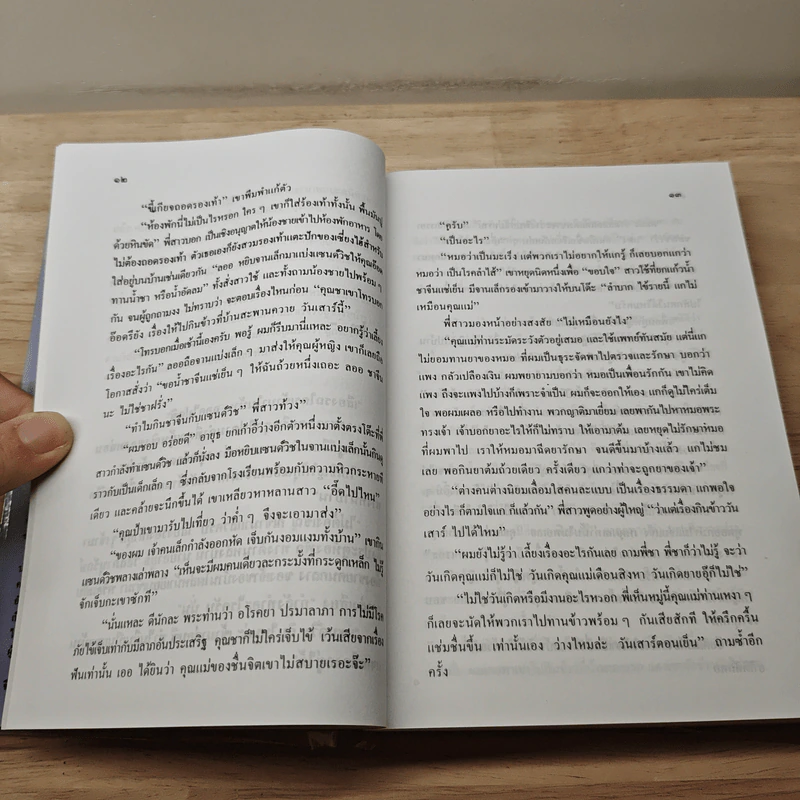 ๑๒
“ขี้เกียจถอดรองเท้า” เขาพึมพำแก้ตัว
“ห้องพักนี่ไม่เป็นไรหรอก ใคร ๆ เขาก็ใส่รองเท้าทั้งนั้น พื้นมันปู
ด้วยหินขัด” พี่สาวบอก เป็นเชิงอนุญาตให้น้องชายเข้าไปห้องพักอาหาร โดย
ไม่ต้องถอดรองเท้า ตัวเธอเองก็ยังสวมรองเท้าแตะปักของเซี่ยงไฮ้สำหรับ
ใส่อยู่บนบ้านเช่นเดียวกัน “ลออ หยิบจานเล็กมาแบ่งแซนด์วิชให้คุณอ๊อด
ทานน้ำชา หรือน้ำอัดลม” ทั้งสั่งสาวใช้ และทั้งถามน้องชายไปพร้อม ๆ
กัน จนผู้ถูกถามงง ไม่ทราบว่า จะตอบเรื่องไหนก่อน “คุณชาเขาโทรบอก
อ๊อดรึยัง เรื่องให้ไปกินข้าวที่บ้านสะพานควาย วันเสาร์นี้”
“โทรบอกเมื่อเช้านี้เองครับ พอรู้ ผมก็รีบมานี่แหละ อยากรู้ว่าเลี้ยง
เรื่องอะไรกัน” ลออถือจานแบ่งเล็ก ๆ มาส่งให้คุณผู้หญิง เขาก็เลยถือ
โอกาสสั่งว่า “ขอน้ำชาจีนแช่เย็น ๆ ให้ฉันถ้วยหนึ่งเถอะ ลออ ชาจีน
นะ ไม่ใช่ชาฝรั่ง”
“ทำไมกินชาจีนกับแซนด์วิช” พี่สาวท้วง
“ผมชอบ อร่อยดี” อายุธ ยกเก้าอี้ว่างอีกตัวหนึ่งมาตั้งตรงโต๊ะที่พี่
สาวกำลังทำแซนด์วิช แล้วก็นั่งลง มือหยิบแซนด์วิชในจานแบ่งเล็กนั้นกินดู
ราวกับเป็นเด็กเล็ก ๆ ซึ่งกลับจากโรงเรียนพร้อมกับความหิวกระหายที
เดียว และคล้ายจะนึกขึ้นได้ เขาเหลียวหาหลานสาว “อี๊ดไปไหน”
“คุณป้าเขามารับไปเที่ยว ว่าค่ำ ๆ จึงจะเอามาส่ง”
“ของผม เจ้าคนเล็กกำลังออกหัด เจ็บกันงอมแงมทั้งบ้าน” เขากิน
แซนด์วิชพลางเล่าพลาง “เห็นจะมีผมคนเดียวละกระมังที่กระดูกเหล็ก ไม่รู้
จักเจ็บกะเขาซักที”
“นั่นแหละ ดีนักละ พระท่านว่า อโรคยา ปรมาลาภา การไม่มีโรค
ภัยไข้เจ็บเท่ากับมีลาภอันประเสริฐ คุณชาก็ไม่ใคร่เจ็บไข้ เว้นเสียจากเรื่อง
ฟันเท่านั้น เออ ได้ยินว่า คุณแม่ของชื่นจิตเขาไม่สบายเรอะจ๊ะ”
๑๓
“ครับ”
“เป็นอะไร”
“หมอว่าเป็นมะเร็ง แต่พวกเราไม่อยากให้แกรู้ ก็เลยบอกแกว่า
หมอว่า เป็นโรคลำไส้” เขาหยุดนิดหนึ่งเพื่อ “ขอบใจ” สาวใช้ที่ยกแก้วน้ำ
ชาจีนแช่เย็น มีจานเล็กรองเข้ามาวางให้บนโต๊ะ “ลำบาก ใช้รายนี้ แกไม่
เหมือนคุณแม่”
พี่สาวมองหน้าอย่างสงสัย “ไม่เหมือนยังไง”
“คุณแม่ท่านระมัดระวังตัวอยู่เสมอ และใช้แพทย์ทันสมัย แต่นี่แก
ไม่ยอมทานยาของหมอ ที่ผมเป็นธุระจัดพาไปตรวจและรักษา บอกว่า
แพง กลัวเปลืองเงิน ผมพยายามบอกว่า หมอเป็นเพื่อนรักกัน เขาไม่คิด
แพง ถึงจะแพงไปบ้างก็เพราะจำเป็น ผมก็จะออกให้เอง แกก็ดูไม่ใคร่เต็ม
ใจ พอผมเผลอ หรือไปทำงาน พวกญาติมาเยี่ยม เลยพากันไปหาหมอพระ
ทรงเจ้า เจ้าบอกยาอะไรให้ก็ไม่ทราบ ให้เอามาต้ม เลยหยุดไม่รักษาหมอ
ที่ผมพาไป เราให้หมอมาฉีดยารักษา จนดีขึ้นมาบ้างแล้ว แกไม่ชม
เลย พอกินยาต้มถ้วยเดียว ครั้งเดียว แกว่าท่าจะถูกยาของเจ้า”
“ต่างคนต่างนิยมเลื่อมใสคนละแบบ เป็นเรื่องธรรมดา แกพอใจ
อย่างไร ก็ตามใจแก ก็แล้วกัน” พี่สาวพูดอย่างผู้ใหญ่ “ว่าแต่เรื่องกินข้าววัน
เสาร์ ไปได้ไหม”
“ผมยังไม่รู้ว่า เลี้ยงเรื่องอะไรกันเลย ถามพี่ชา พี่ชาก็ว่าไม่รู้ จะว่า
วันเกิดคุณแม่ก็ไม่ใช่ วันเกิดคุณแม่เดือนสิงหา วันเกิดยายอู๊ก็ไม่ใช่”
“ไม่ใช่วันเกิดหรือมีงานอะไรหรอก พี่เห็นหมู่นี้คุณแม่ท่านเหงา ๆ
ก็เลยจะนัดให้พวกเราไปทานข้าวพร้อม ๆ กันเสียสักที ให้ครึกครื้น
แช่มชื่นขึ้น เท่านั้นเอง ว่างไหมล่ะ วันเสาร์ตอนเย็น” ถามซ้ำอีก
ครั้ง